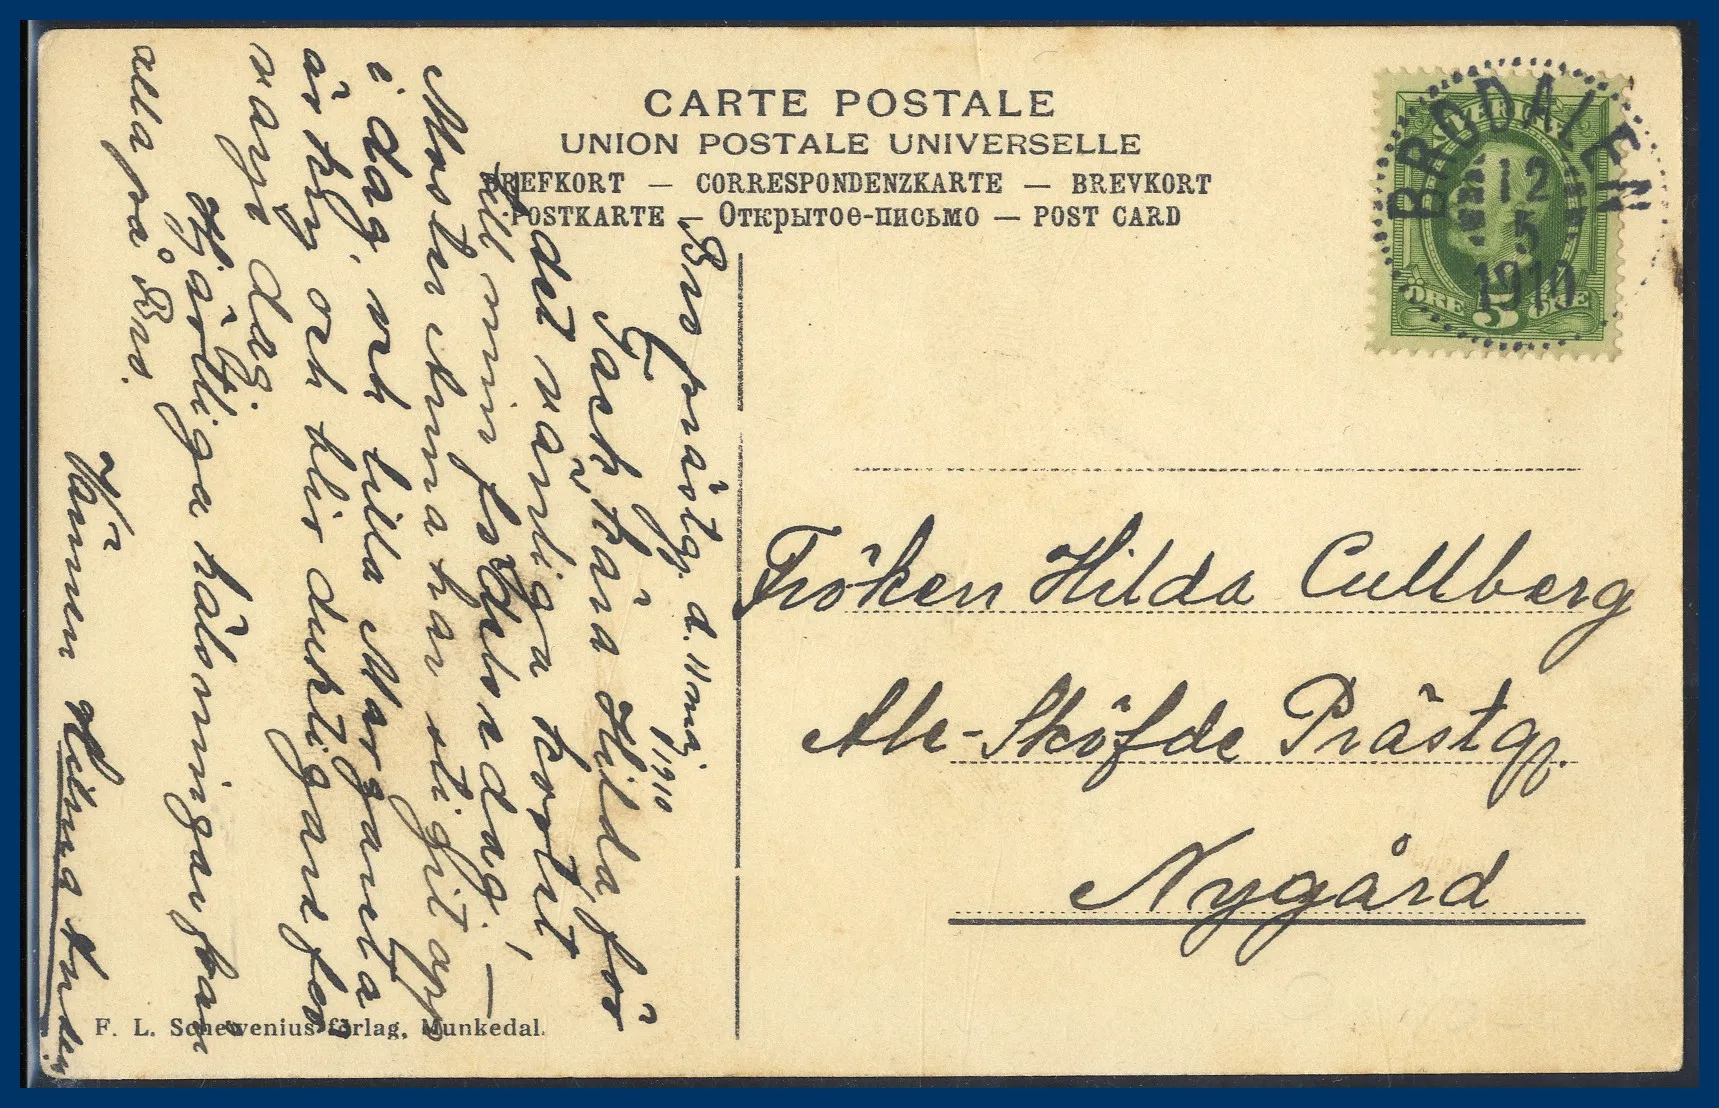 CARTE POSTALE
UNION POSTALE UNIVERSELLE
BREFKORT — CORRESPONDENZKARTE — BREVKORT
POSTKARTE — Открытоѳ-письмо — POST CARD
SVERIGE
ÖRE 5 ÖRE
BRODALEN
12
5
1910
Bro prästg. d. 11 maj
1910
Tack, kära Hilda, för
ditt vänliga kortet
till min födelsedag. —
Moster Anna har stigit upp
i dag, och lilla Margareta
är kry och blir duktigare för
varje dag.
Hjärtliga hälsningar från
alla på Bro.
Vännen Hilma
Fröken Hilda Cullberg
Ale-Sköfde Prästg.
Nygård
F. L. Schewenius förlag, Munkedal.